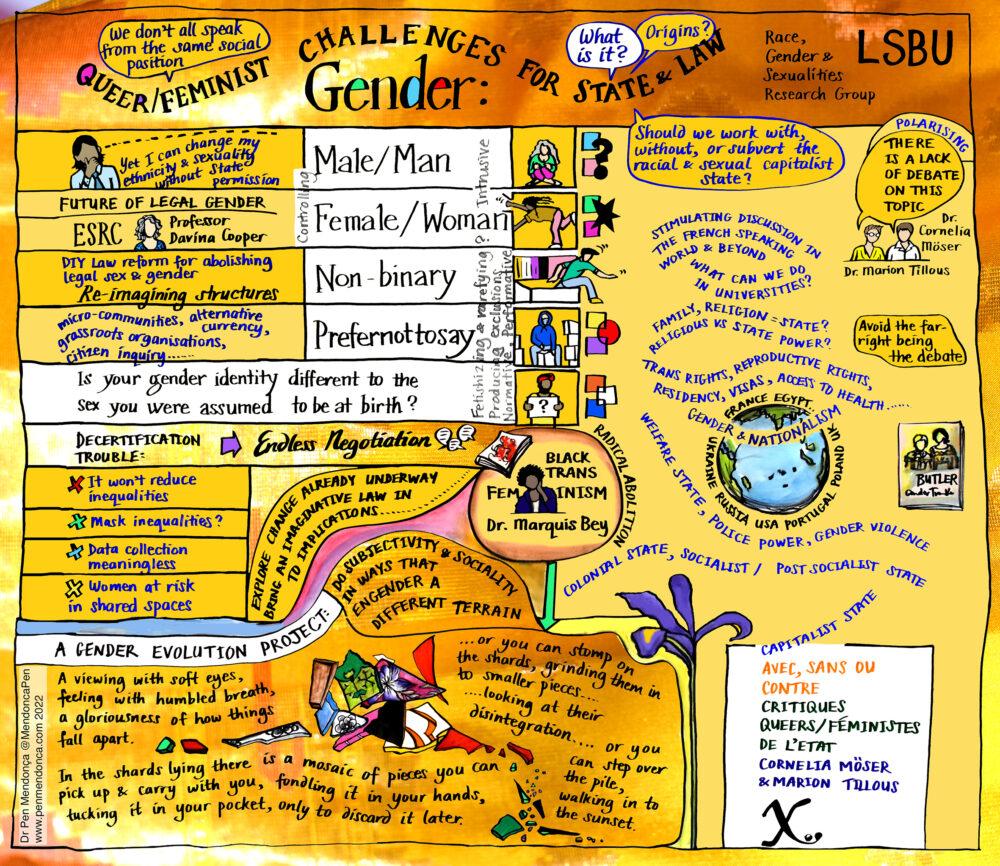 We don't all speak
from the same social
position
QUEER/FEMINIST
CHALLENGES
FOR STATE & LAW
Gender:
What
is it?
Origins?
Race,
Gender &
Sexualities
Research Group
LSBU
Yet I can change my
ethnicity & sexuality
without State
permission
FUTURE OF LEGAL GENDER
ESRC
Professor
Davina Cooper
DIY Law reform for abolishing
legal sex & gender
Re-imagining structures
micro-communities, alternative
currency,
grassroots organisations,
citizen inquiry......
Male/Man
Female/Woman
Non-binary
Prefernottosay
Controlling
Fetishizing & rarefying? Intrusive
Producing exclusions
Normative, Performative
Is your gender identity different to the
sex you were assumed to be at birth?
?
?
Should we work with,
without, or subvert the
racial & sexual capitalist
state?
POLARISING
THERE
IS A LACK
OF DEBATE
ON THIS
TOPIC
Dr.
Cornelia
Möser
Dr. Marion Tillous
STIMULATING DISCUSSION IN
THE FRENCH SPEAKING
WORLD & BEYOND
WHAT CAN WE DO
IN UNIVERSITIES?
FAMILY, RELIGION = STATE?
RELIGIOUS VS STATE POWER?
Avoid the far-
right being
the debate
TRANS RIGHTS, REPRODUCTIVE RIGHTS,
RESIDENCY, VISAS, ACCESS TO HEALTH......
GENDER & NATIONALISM
FRANCE EGYPT
UKRAINE RUSSIA USA PORTUGAL POLAND UK
WELFARE STATE, POLICE POWER, GENDER VIOLENCE
COLONIAL STATE, SOCIALIST / POST SOCIALIST STATE
CAPITALIST STATE
BUTLER
DECERTIFICATION
TROUBLE:
Endless Negotiation
It won't reduce
inequalities
Mask inequalities?
Data collection
meaningless
Women at risk
in shared spaces
EXPLORE CHANGE ALREADY UNDERWAY
BRING AN IMAGINATIVE LAW IN
TO IMPLICATIONS......
BLACK
TRANS
FEMINISM
Dr. Marquis Bey
RADICAL ABOLITION
DO SUBJECTIVITY & SOCIALITY
IN WAYS THAT
ENGENDER A
DIFFERENT TERRAIN
A GENDER EVOLUTION PROJECT:
A viewing with soft eyes,
feeling with humbled breath,
a gloriousness of how things
fall apart.
In the shards lying there is a mosaic of pieces you can
pick up & carry with you, fondling it in your hands,
tucking it in your pocket, only to discard it later.
...or you can stomp on
the shards, grinding them in
to smaller pieces...
....looking at their
disintegration.... or you
can step over
the pile,
walking in to
the sunset.
AVEC, SANS OU
CONTRE
CRITIQUES
QUEERS/FÉMINISTES
DE L'ETAT
CORNELIA MÖSER
& MARION TILLOUS
Dr Pen Mendonça @MendoncaPen
www.penmendonca.com 2022